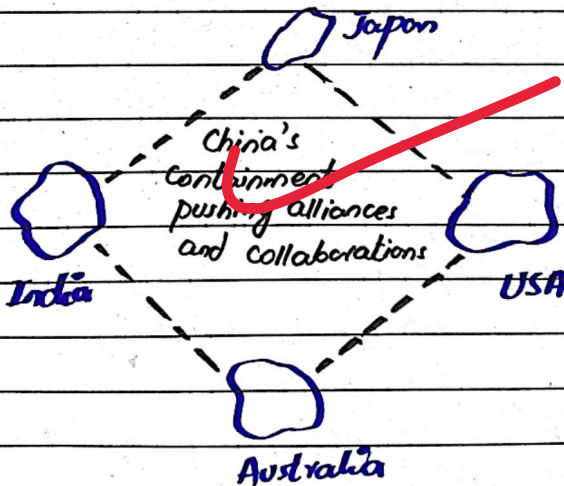 Japan
China's
containment
pushing alliances
and collaborations
India
USA
Australia